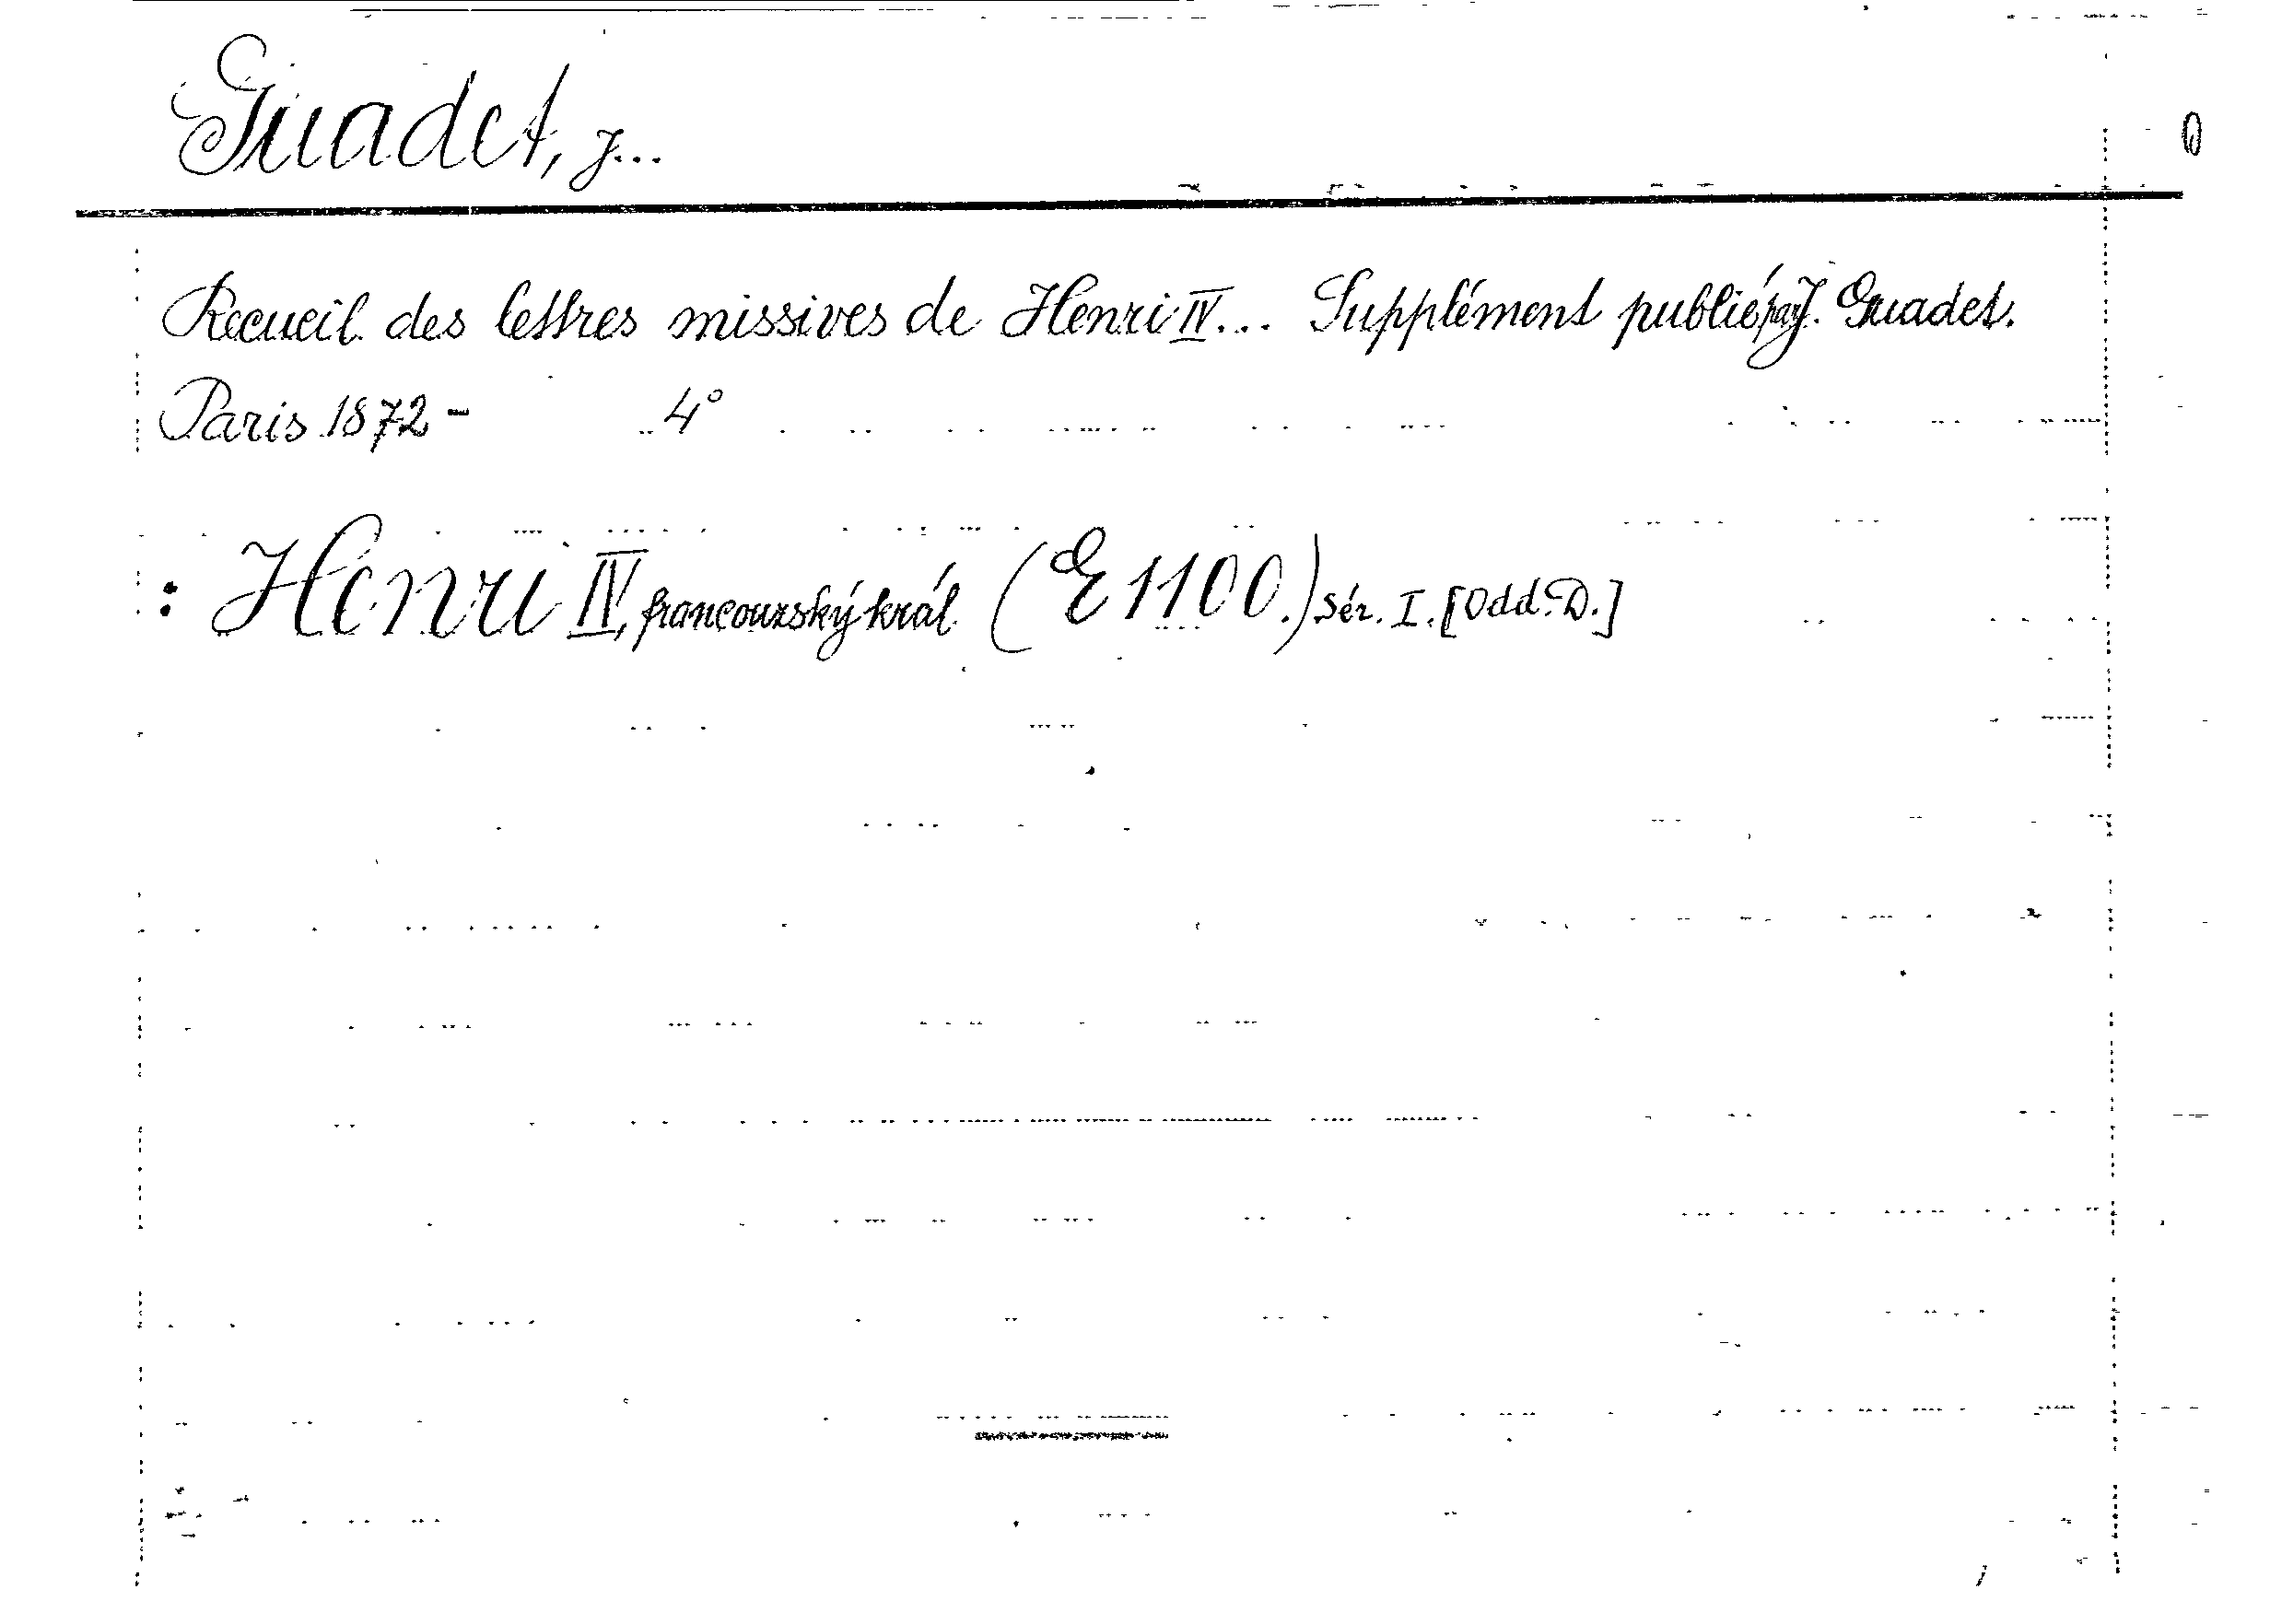 Guadet, J...
Recueil des lettres missives de Henri IV... Supplément publié par J. Guadet.
Paris 1872- 4°
: Henri IV, francouzský král (E 1100.) Sér. I. [Odd. D.]